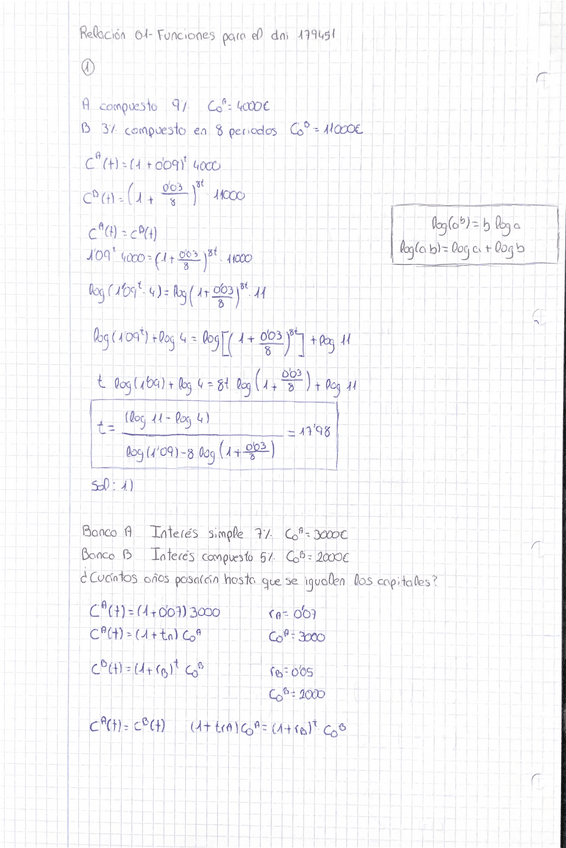 Relación 01- Funciones para el dni 179451
1
A compuesto 9% C₀ᴬ = 4000€
B 3% compuesto en 8 periodos C₀ᴮ = 11000€
Cᴬ(t) = (1 + 0'09)ᵗ 4000
Cᴮ(t) = (1 + 0'03/8)⁸ᵗ 11000
Cᴬ(t) = Cᴮ(t)
1'09ᵗ 4000 = (1 + 0'03/8)⁸ᵗ · 11000
log(1'09ᵗ · 4) = log(1 + 0'03/8)⁸ᵗ · 11
log(1'09ᵗ) + log 4 = log[(1 + 0'03/8)⁸ᵗ] + log 11
t log(1'09) + log 4 = 8t log(1 + 0'03/8) + log 11
t = (log 11 - log 4) / log(1'09) - 8 log(1 + 0'03/8) = 17'98
Sol: 1)
log(aᵇ) = b log a
log(a b) = log a + log b
Banco A Interés simple 7% C₀ᴬ = 3000€
Banco B Interés compuesto 5% C₀ᴮ = 2000€
¿Cuántos años pasarán hasta que se igualen los capitales?
Cᴬ(t) = (1 + 0'07) 3000 rA = 0'07
Cᴬ(t) = (1 + trA) C₀ᴬ C₀ᴬ = 3000
Cᴮ(t) = (1 + rB)ᵗ C₀ᴮ rB = 0'05
C₀ᴮ = 2000
Cᴬ(t) = Cᴮ(t) (1 + trA) C₀ᴬ = (1 + rB)ᵗ C₀ᴮ